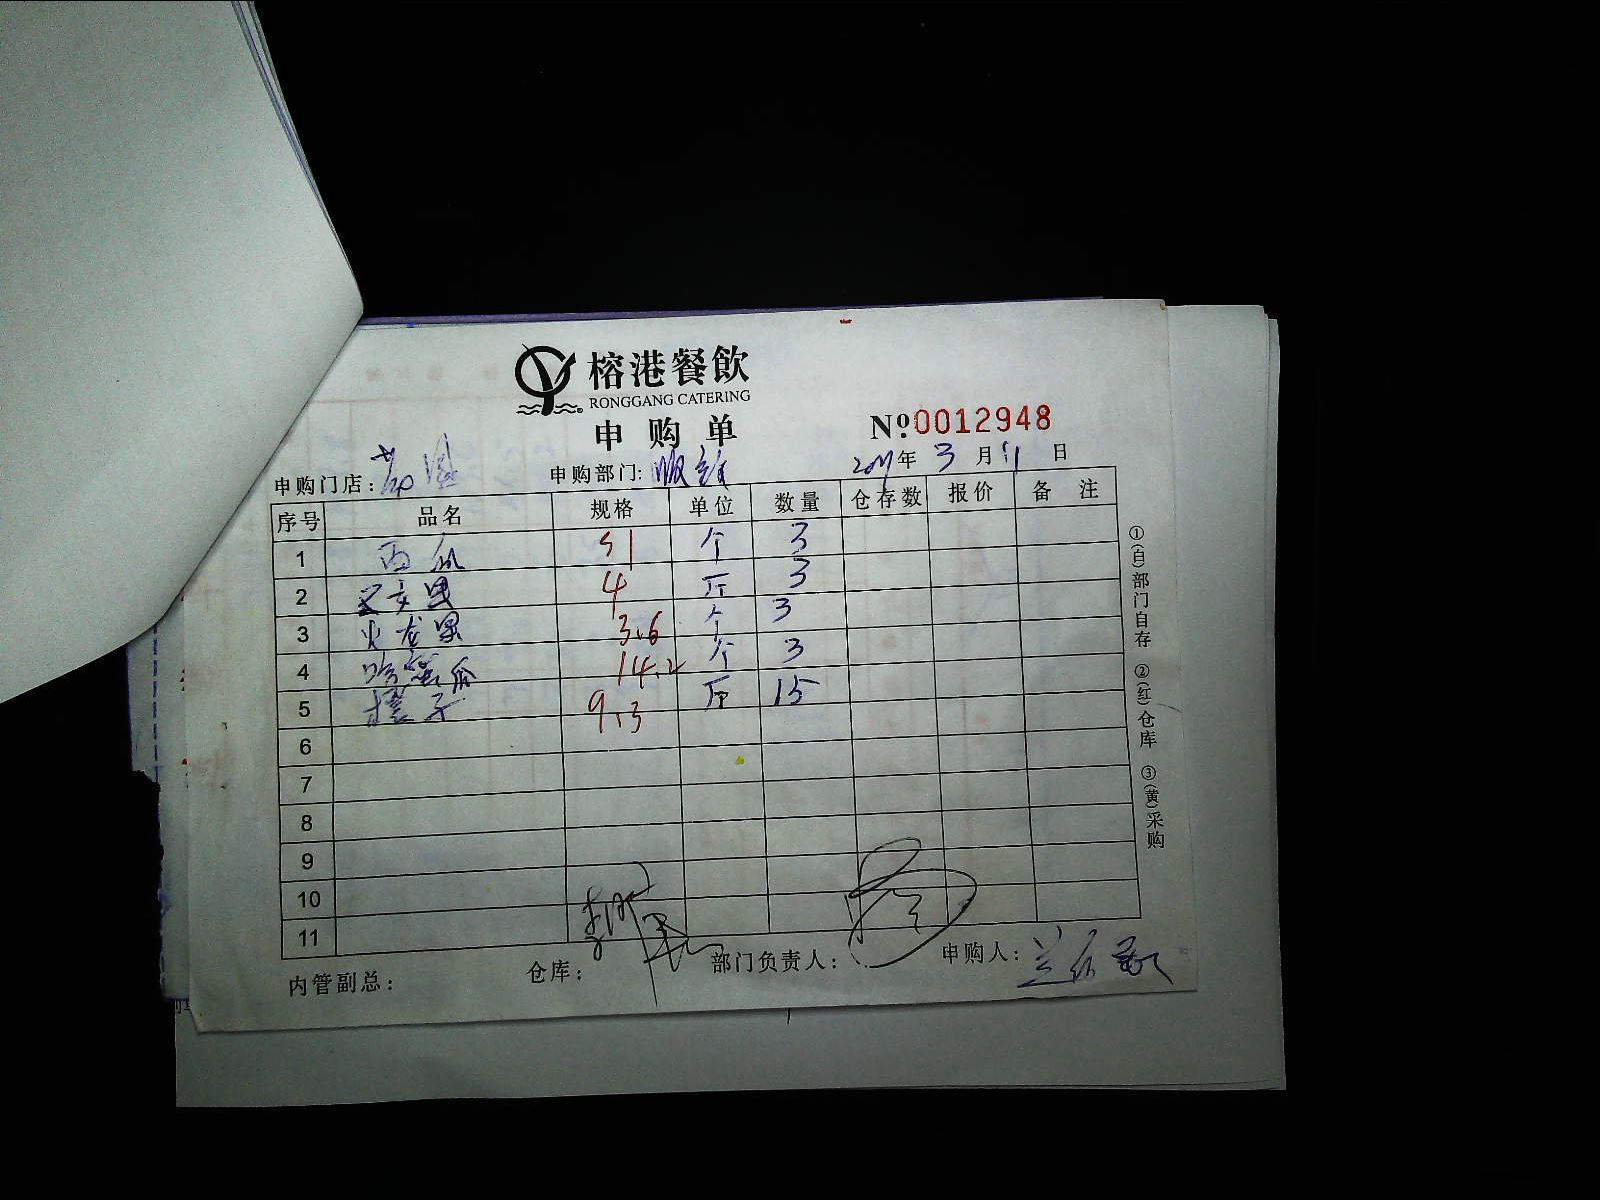 榕港餐飲
RONGGANG CATERING
申购单
№0012948
申购门店： 申购部门: 年 3 月 11 日
序号 品名 规格 单位 数量 仓存数 报价 备注
1 西瓜 51 个 3
2 4 斤 3
3 火龙果 3.6 个 3
4 哈密瓜 14.2 个 3
5 橙子 9.3 斤 15
6
7
8
9
10
11
内管副总： 仓库： 部门负责人： 申购人：
①(自)部门自存 ②(红)仓库 ③(黄)采购